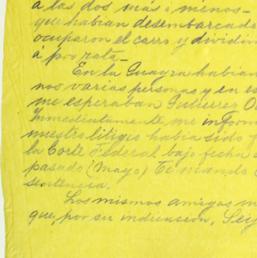 á las dos más o menos-
que habian desembarcado
ocuparon el carro y dividim
á por rata-
En la Guayra habian
nos varias personas y en es
me esperaban Gutierrez O
Inmediatamente me inform
nuestro litigio habia sido
la Corte Federal bajo fecha
pasado (Mayo) Tomando
sentencia.
Los mismos amigos m
que, por su indicacion, Sey